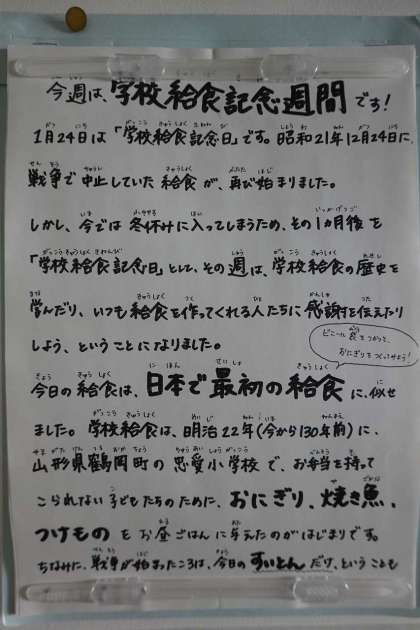 今週は、学校給食記念週間です!
1月24日は「学校給食記念日」です。昭和21年12月24日に、
戦争で中止していた給食が、再び始まりました。
しかし、今では冬休みに入ってしまうため、その1ヵ月後を
「学校給食記念日」とし、その週は、学校給食の歴史を
学んだり、いつも給食を作ってくれる人たちに感謝を伝えたり
しよう、ということになりました。
ビニール袋をつかって、
おにぎりをつくってみよう!
今日の給食は、日本で最初の給食に似せ
ました。学校給食は、明治22年(今から130年前)に、
山形県鶴岡町の忠愛小学校で、お弁当を持って
こられない子どもたちのために、おにぎり、焼き魚、
つけものをお昼ごはんに与えたのがはじまりです。
ちなみに、戦争が始まったころは、今日のすいとんだけ、ということも